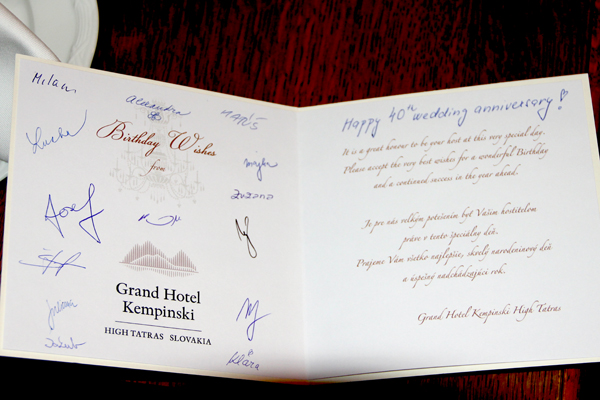 Milan
Alexandra
MARÚŠ
Birthday Wishes
from
Zuzana
Jozef
Grand Hotel
Kempinski
HIGH TATRAS SLOVAKIA
Jakub
Klára
Happy 40th wedding anniversary!
It is a great honour to be your host at this very special day.
Please accept the very best wishes for a wonderful Birthday
and a continued success in the year ahead.
Je pre nás veľkým potešením byť Vašim hostiteľom
práve v tento špeciálny deň.
Prajeme Vám všetko najlepšie, skvelý narodeninový deň
a úspešný nadchádzajúci rok.
Grand Hotel Kempinski High Tatras